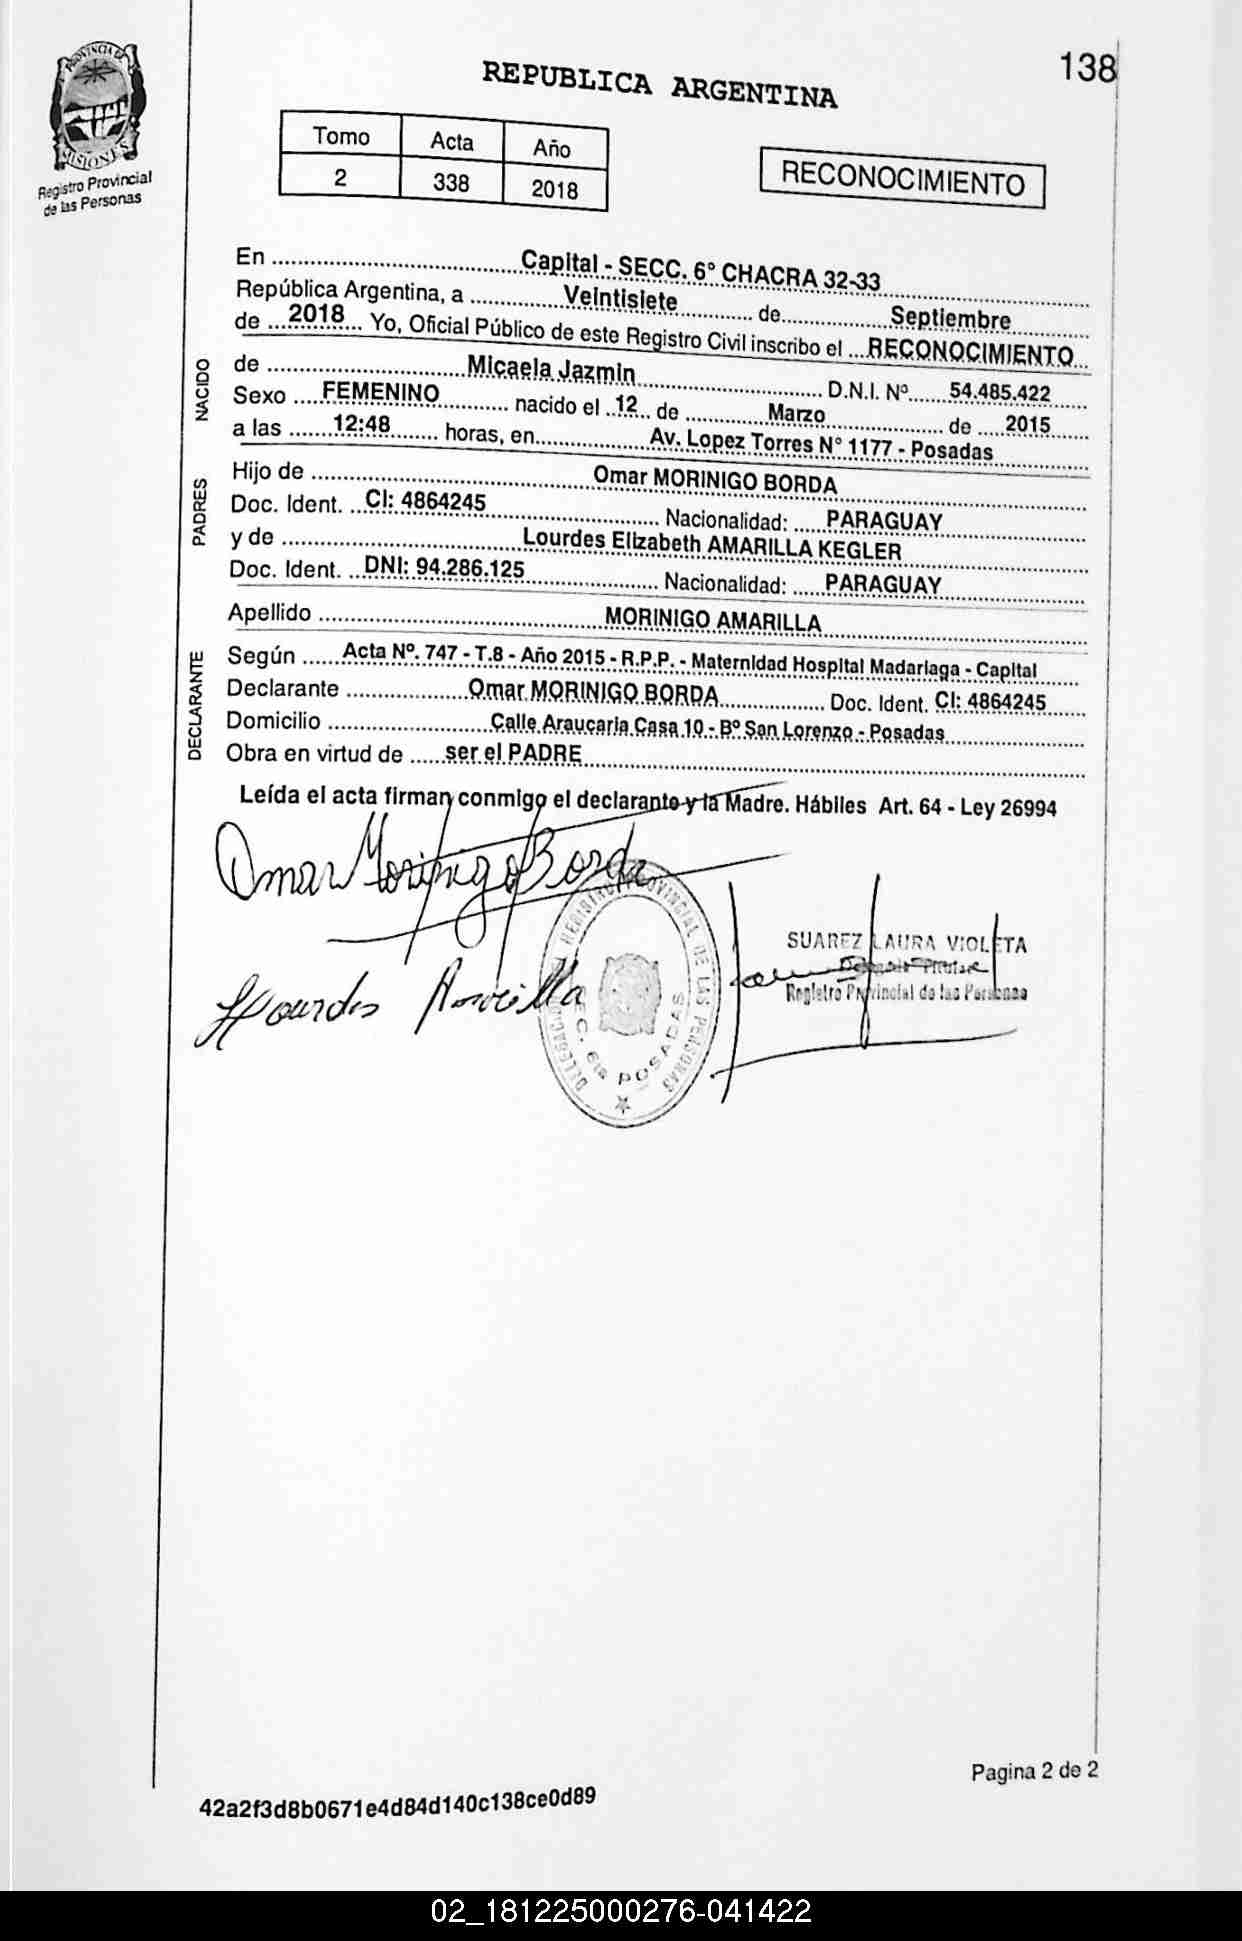 138
REPUBLICA ARGENTINA
PROVINCIA DE
MISIONES
Registro Provincial
de las Personas
Tomo Acta Año
2 338 2018
RECONOCIMIENTO
En ........ Capital - SECC. 6° CHACRA 32-33 ........
República Argentina, a ........ Veintisiete ........ de ........ Septiembre ........
de ... 2018 ... Yo, Oficial Público de este Registro Civil inscribo el ... RECONOCIMIENTO ...
NACIDO
de ........ Micaela Jazmin ........ D.N.I. Nº ...... 54.485.422 ......
Sexo .... FEMENINO ........ nacido el .. 12 .. de ........ Marzo ........ de .... 2015 ....
a las ...... 12:48 ...... horas, en ........ Av. Lopez Torres N° 1177 - Posadas ........
PADRES
Hijo de ........ Omar MORINIGO BORDA ........
Doc. Ident. ... CI: 4864245 ........ Nacionalidad: ..... PARAGUAY ........
y de ........ Lourdes Elizabeth AMARILLA KEGLER ........
Doc. Ident. ... DNI: 94.286.125 ........ Nacionalidad: ..... PARAGUAY ........
Apellido ........ MORINIGO AMARILLA ........
DECLARANTE
Según ...... Acta Nº. 747 - T.8 - Año 2015 - R.P.P. - Maternidad Hospital Madariaga - Capital ......
Declarante ........ Omar MORINIGO BORDA ........ Doc. Ident. CI: 4864245 ......
Domicilio ........ Calle Araucaria Casa 10 - Bº San Lorenzo - Posadas ........
Obra en virtud de ..... ser el PADRE ........
Leída el acta firman conmigo el declarante y la Madre. Hábiles Art. 64 - Ley 26994
Omar Morinigo Borda
Lourdes Amarilla
DELEGACION REGISTRO PROVINCIAL DE LAS PERSONAS
SEC. 6ta POSADAS
SUAREZ LAURA VIOLETA
Delegada Titular
Registro Provincial de las Personas
Pagina 2 de 2
42a2f3d8b0671e4d84d140c138ce0d89
02_181225000276-041422